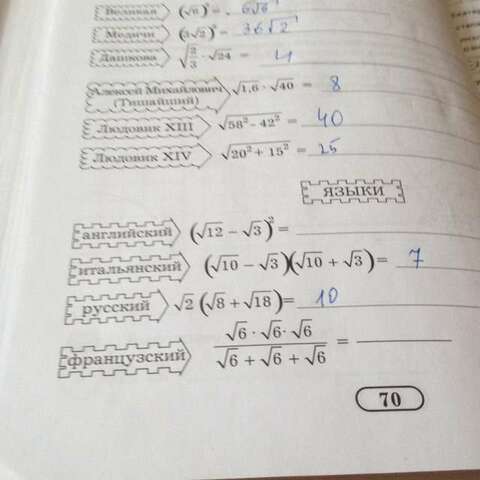 Великая (√6)³ = 6√6
Медичи (3√2)² = 36√2
Дашкова √2/3 · √24 = 4
Алексей Михайлович (Тишайший) √1,6 · √40 = 8
Людовик XIII √58² − 42² = 40
Людовик XIV √20² + 15² = 25
ЯЗЫКИ
английский (√12 − √3)² =
итальянский (√10 − √3)(√10 + √3) = 7
русский √2 (√8 + √18) = 10
французский √6 · √6 · √6 / √6 + √6 + √6 =
70